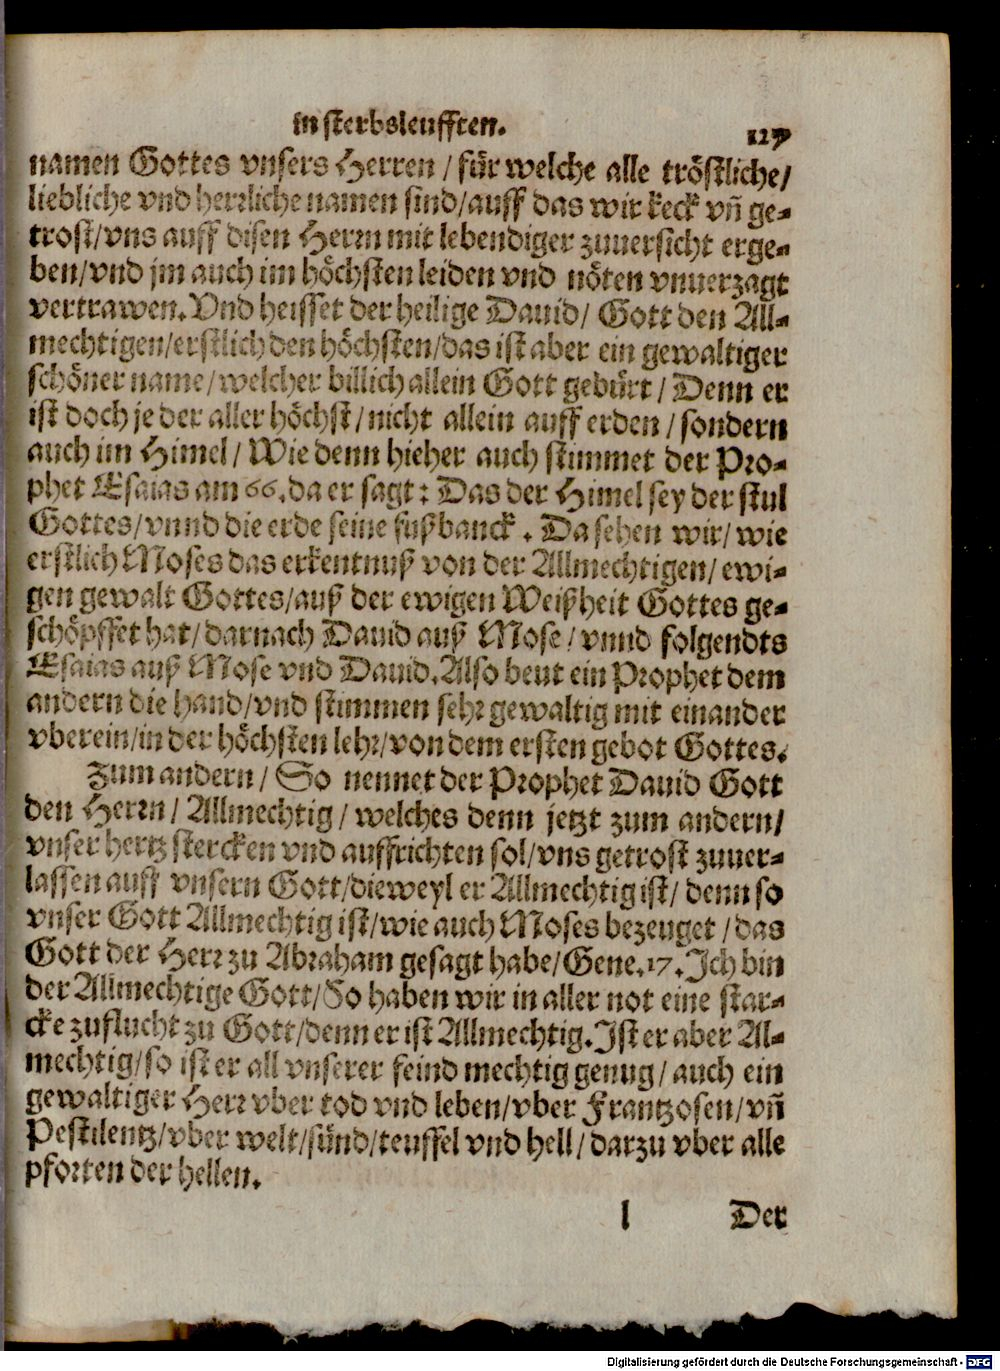 in sterbsleufften. 127
namen Gottes vnsers Herren / für welche alle tröstliche/
liebliche vnd herrliche namen sind/auff das wir keck vñ ge-
trost/vns auff disen Herrn mit lebendiger zuuersicht erge-
ben/vnd jm auch im höchsten leiden vnd nöten vnuerzagt
vertrawen. Vnd heisset der heilige Dauid/ Gott den All-
mechtigen/erstlich den höchsten/das ist aber ein gewaltiger
schöner name/welcher billich allein Gott gebürt / Denn er
ist doch je der aller höchst/nicht allein auff erden / sondern
auch im Himel / Wie denn hieher auch stimmet der Pro-
phet Esaias am 66. da er sagt : Das der Himel sey der stul
Gottes/vnnd die erde seine fußbanck . Da sehen wir/ wie
erstlich Moses das erkentnuß von der Allmechtigen/ ewi-
gen gewalt Gottes/auß der ewigen Weißheit Gottes ge-
schöpffet hat/darnach Dauid auß Mose/vnnd folgendts
Esaias auß Mose vnd Dauid. Also beut ein Prophet dem
andern die hand/vnd stimmen sehr gewaltig mit einander
vberein/in der höchsten lehr/von dem ersten gebot Gottes.
Zum andern / So nennet der Prophet Dauid Gott
den Herrn / Allmechtig / welches denn jetzt zum andern/
vnser hertz stercken vnd auffrichten sol/vns getrost zuuer-
lassen auff vnsern Gott/dieweyl er Allmechtig ist/ denn so
vnser Gott Allmechtig ist/wie auch Moses bezeuget /das
Gott der Herr zu Abraham gesagt habe/Gene.17. Ich bin
der Allmechtige Gott/So haben wir in aller not eine star-
cke zuflucht zu Gott/denn er ist Allmechtig. Ist er aber Al-
mechtig/so ist er all vnserer feind mechtig genug / auch ein
gewaltiger Herr vber tod vnd leben/vber Frantzosen/vñ
Pestilentz/vber welt/sünd/teuffel vnd hell / darzu vber alle
pforten der hellen.
l Der
Digitalisierung gefördert durch die Deutsche Forschungsgemeinschaft - DFG